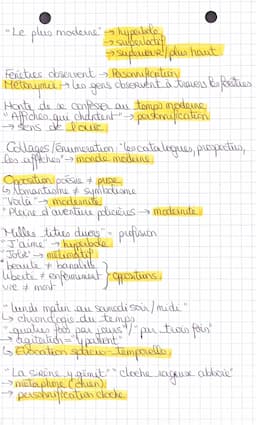 "Le plus moderne" → hyperbole
→ superlatif
→ supérieur/plus haut
Fenêtres observent → Personnification
Métonymie → les gens observent à travers la fenêtres
Honte de se confesser au temps moderne
"Affiches qui chantent" → personnification
→ sens de l'ouïe
Collages/énumération "les catalogues, prospectus,
les affiches" → monde moderne
Opposition poésie ≠ prose
↳ romantisme ≠ symbolisme
"Voilà" → modernité
"Pleine d'aventure policières → modernité
"Milles titres divers" = profusion
"J'aime" → hyperbole
"Jolie" → mélioratif
beauté ≠ banalité
liberté ≠ enfermement } oppositions
vie ≠ mort
"lundi matin au samedi soir/midi"
↳ chronologie du temps
"quatres fois par jours"/"par trois fois"
→ agitation = "y passent"
↳ Évocation spacio-temporelle
"La sirène y gémit" "cloche rageuse aboie"
→ métaphore (chien)
→ personnification cloche